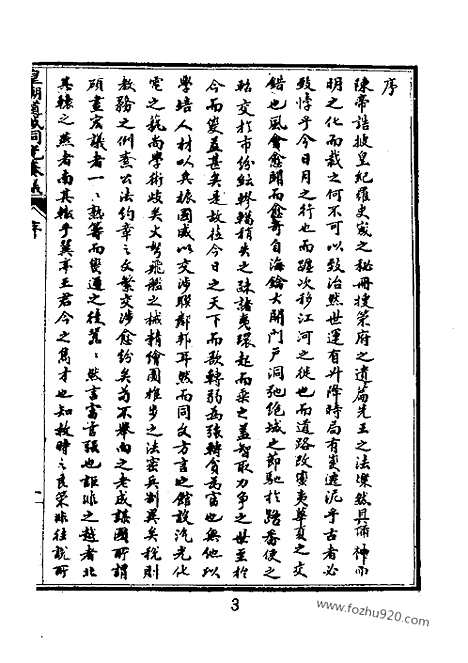 序
陳帝誥披皇紀羅史宬之秘冊搜策府之遺篇先王之法燦然具備神而
明之化而裁之何不可以致治然世運有升降時局有變遷泥乎古者必
致悖乎今日月之行也而躔次移江河之徙也而道路改蠻夷華夏之交
錯也風會愈闢而愈奇自海鑰大開門戶洞弛絕域之節馳於路番使之
軺交於市紛紜轇轕稍失之疎諸夷環起而乘之蓋智取力爭之世至於
今而變益甚矣是故在今日之天下而欲轉弱為強轉貧為富也無他以
學培人材以兵振國威以交涉聯鄰邦耳然而同文方言之館設汽光化
電之藝尚學術歧矣火弩飛艦之械精繪圖推步之法密兵制異矣稅則
教務之例查公法約章之文繁交涉愈紛矣苟不舉而之老成謀國所謂
碩畫宏議者一一熟籌而變通之徒 然言富言強也詎非之越者北
其轅之燕者南其轍乎翼亭王君今之雋才也知救時之良策非往說所
皇朝 同光奏議
序
一
3
www.fozhu920.com